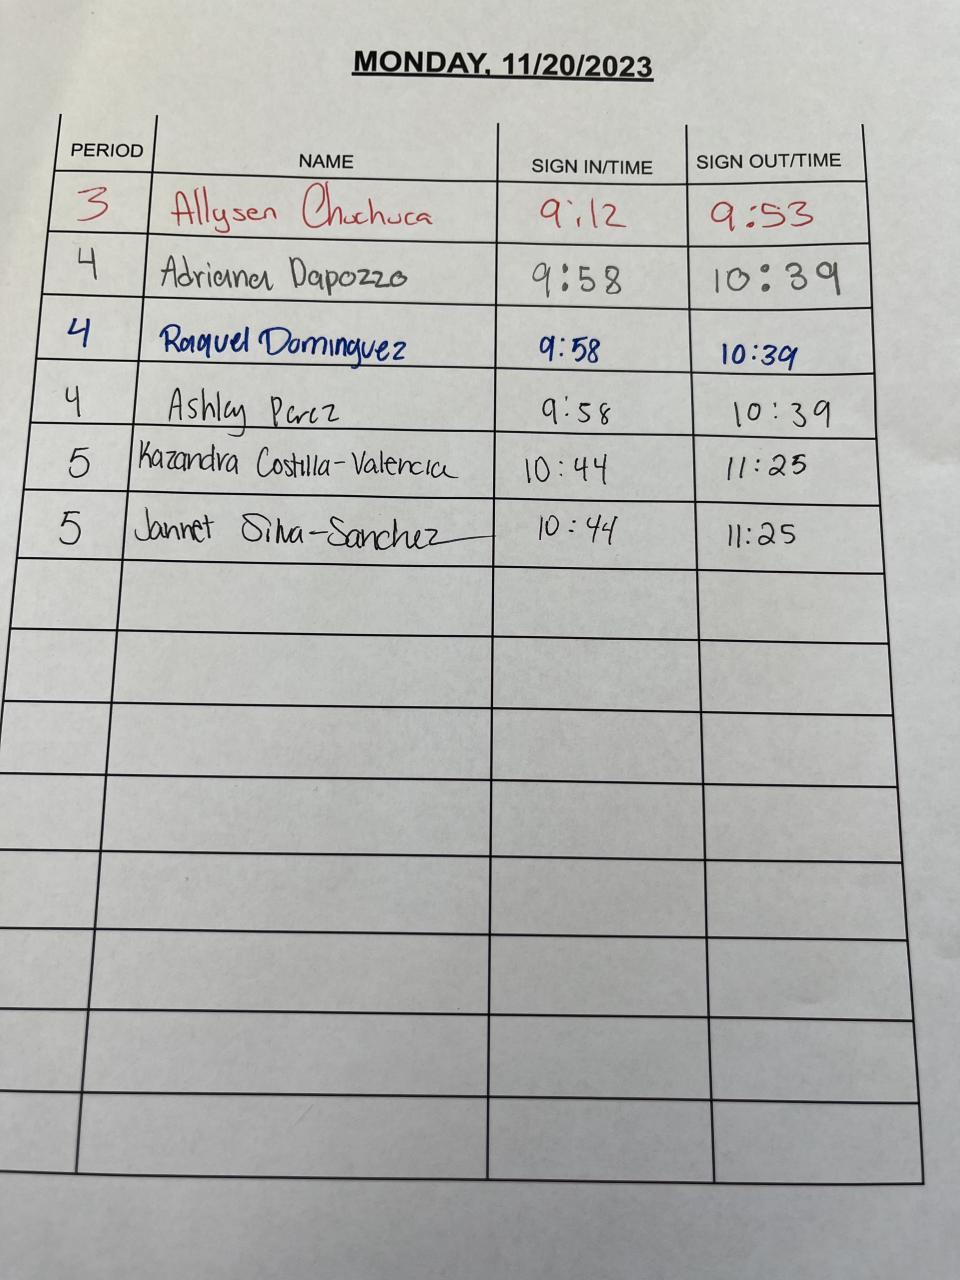 MONDAY, 11/20/2023
PERIOD NAME SIGN IN/TIME SIGN OUT/TIME
3 Allysen Chuchuca 9:12 9:53
4 Adriana Dapozzo 9:58 10:39
4 Raquel Dominguez 9:58 10:39
4 Ashley Perez 9:58 10:39
5 Kazandra Costilla-Valencia 10:44 11:25
5 Jannet Silva-Sanchez 10:44 11:25